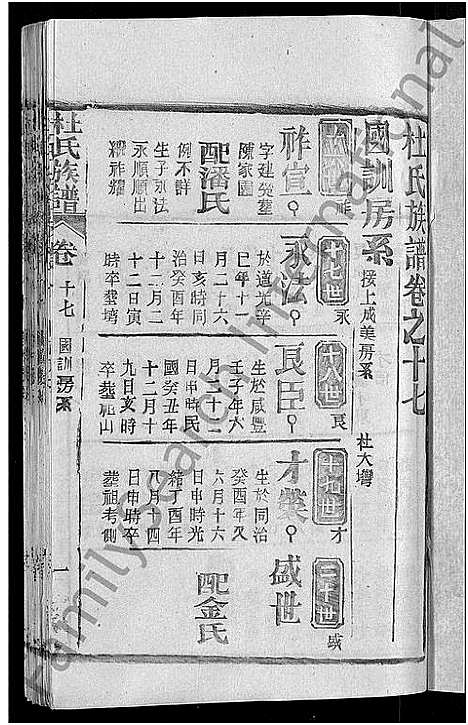 杜氏族譜卷之十七
國訓房系
接上成美房系
杜大塆
祚
祚宣
字建癸塟
陳家園
配潘氏
例不詳
生子永法
永順順出
繼祚耀
十七世
永
永法
於道光辛
巳年十一
月二十六
日亥時同
治癸酉年
十二月二
十二日寅
時卒塟塆
十八世
良
良臣
生於咸豐
壬子年六
月二十二
日申時民
國癸丑年
十二月十
九日亥時
卒塟祖山
十九世
才
才
生於同治
癸酉年又
六月十六
日申時光
緒丁酉年
八月十四
日申時卒
塟祖考側
二十世
盛
盛世
配金氏
杜氏族譜
卷
十七
國訓房系
一
FamilySearch International